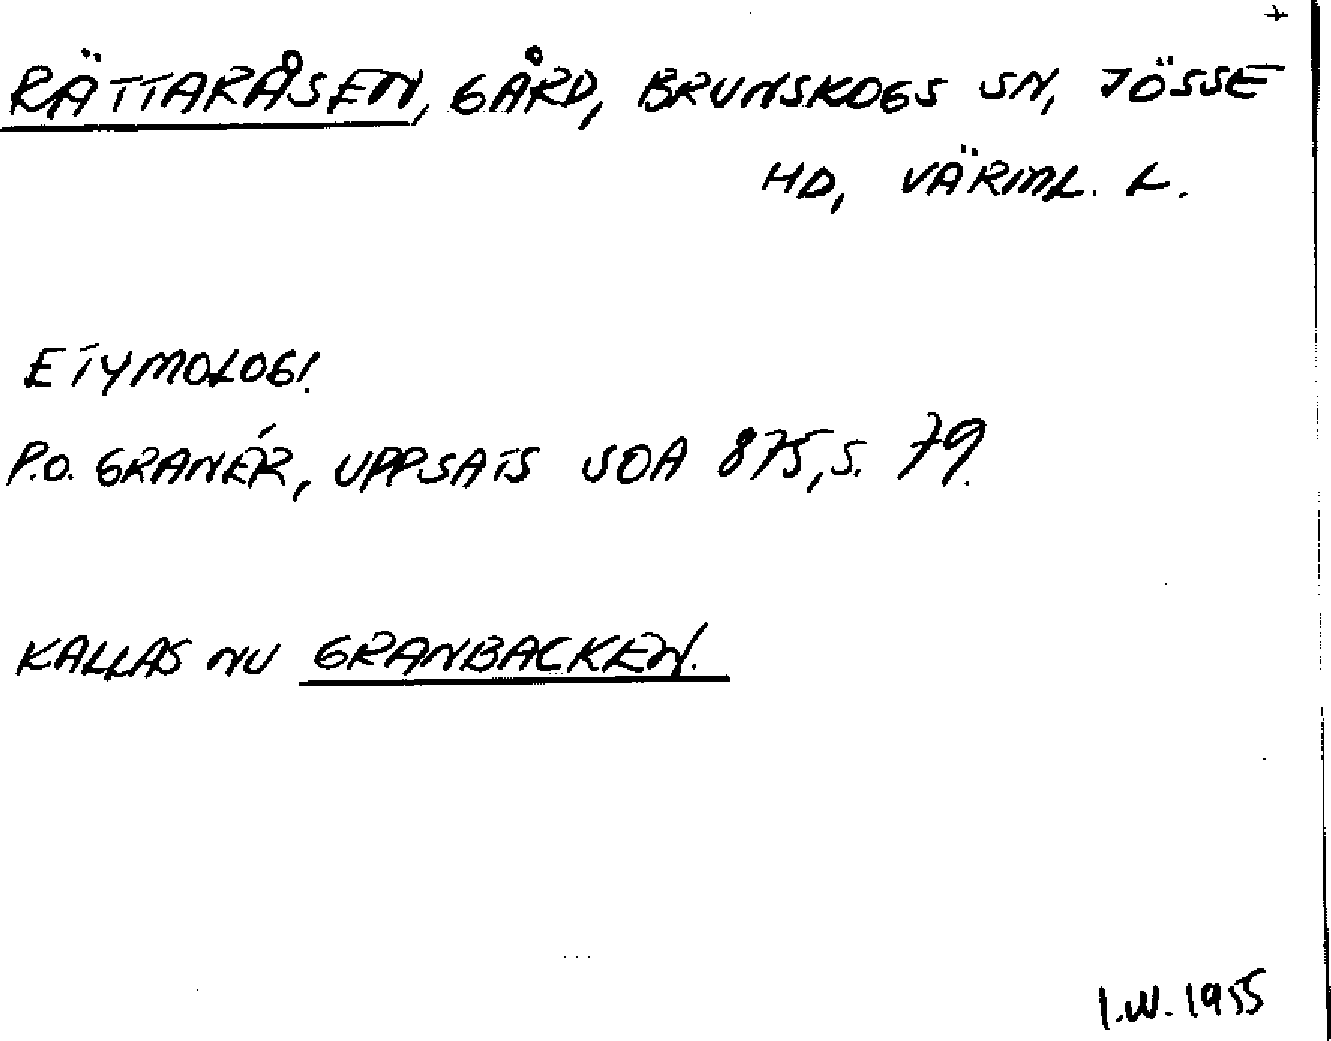 +
RÄTTARÅSEN, GÅRD, BRUNSKOGS SN, JÖSSE
HD, VÄRML. L.
ETYMOLOGI.
P.O. GRANÉR, UPPSATS SOA 875, S. 79.
KALLAS NU GRANBACKEN.
I.W. 1955